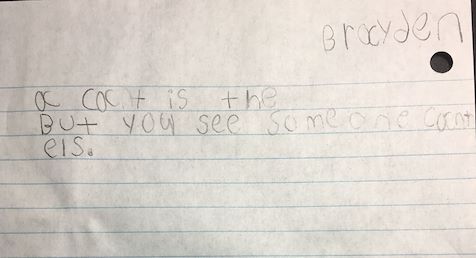 Brayden
a can't is the
But you see someone can't
els.